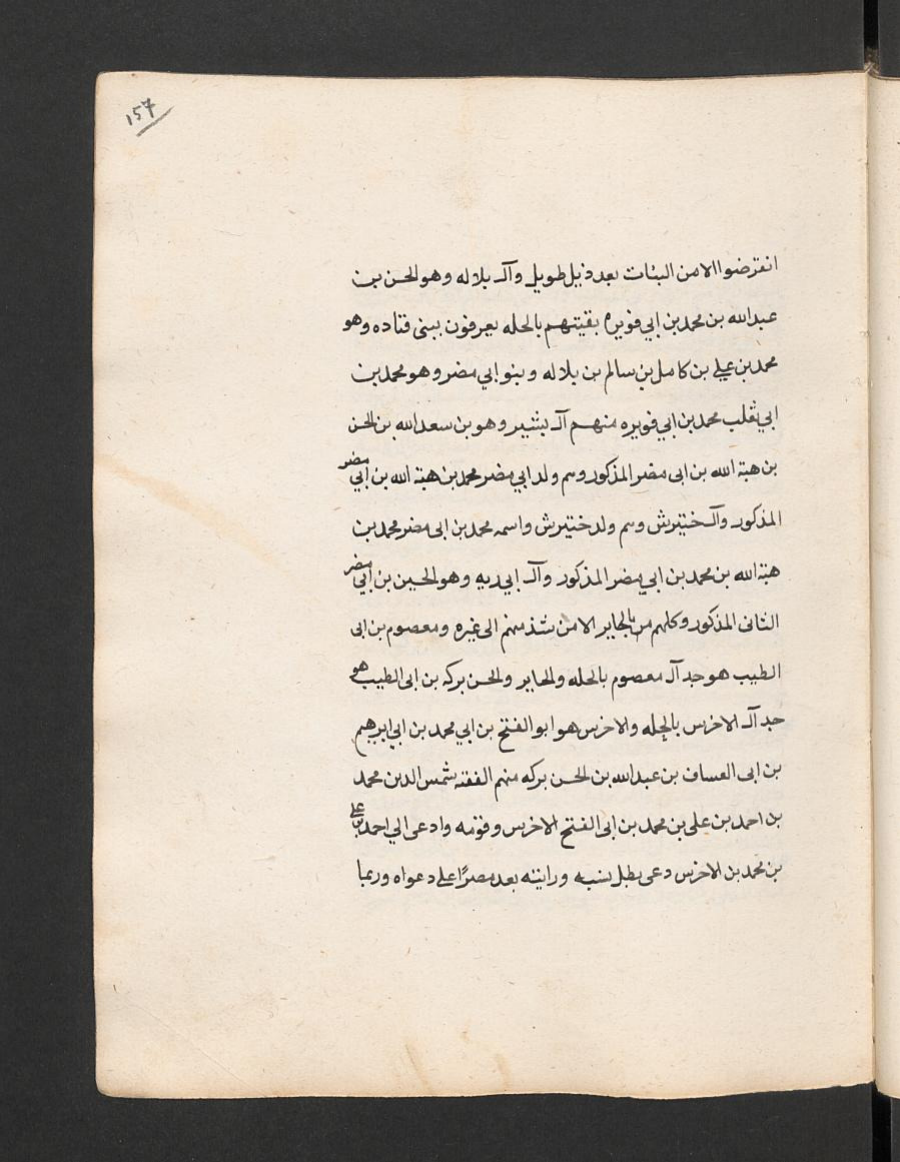 157
انقرضوا الا من البنات بعد ذيل طويل وآل بلاله وهو الحسن بن
عبدالله بن محمد بن ابي فويره بقيتهم بالحله يعرفون ببنى قتاده وهو
محمد بن علي بن كامل بن سالم بن بلاله وبنو ابي مضر وهو محمد بن
ابي ثقلب محمد بن ابي فويره منهم آل بشير وهو بن سعد الله بن الحسن
بن هبة الله بن ابى مضر المذكور وهم ولد ابي مضر محمد بن هبة الله بن ابي مضر
المذكور وآل ختيرش وهم ولد ختيرش واسمه محمد بن ابى مضر محمد بن
هبة الله بن محمد بن ابي مضر المذكور وآل ابي ريه وهو الحسين بن ابي مضر
الثانى المذكور وكلهم من بالحاير الا من شذ منهم الى غيره ومعصوم بن ابى
الطيب هو جد آل معصوم بالحله والحاير والحسن بركه بن ابى الطيب هو
جد آل الاخرس بالحله والاخرس هو ابو الفتح بن ابي محمد بن ابي ابرهيم
بن ابى الفساف بن عبد الله بن الحسن بركه منهم الفقه شمس الدين محمد
بن احمد بن على بن محمد بن ابى الفتح الاخرس وقومه وادعى الي احمد بن علي
بن محمد بن الاخرس دعى بطل نسبه ورايته بعد مصرًا على دعواه وربما